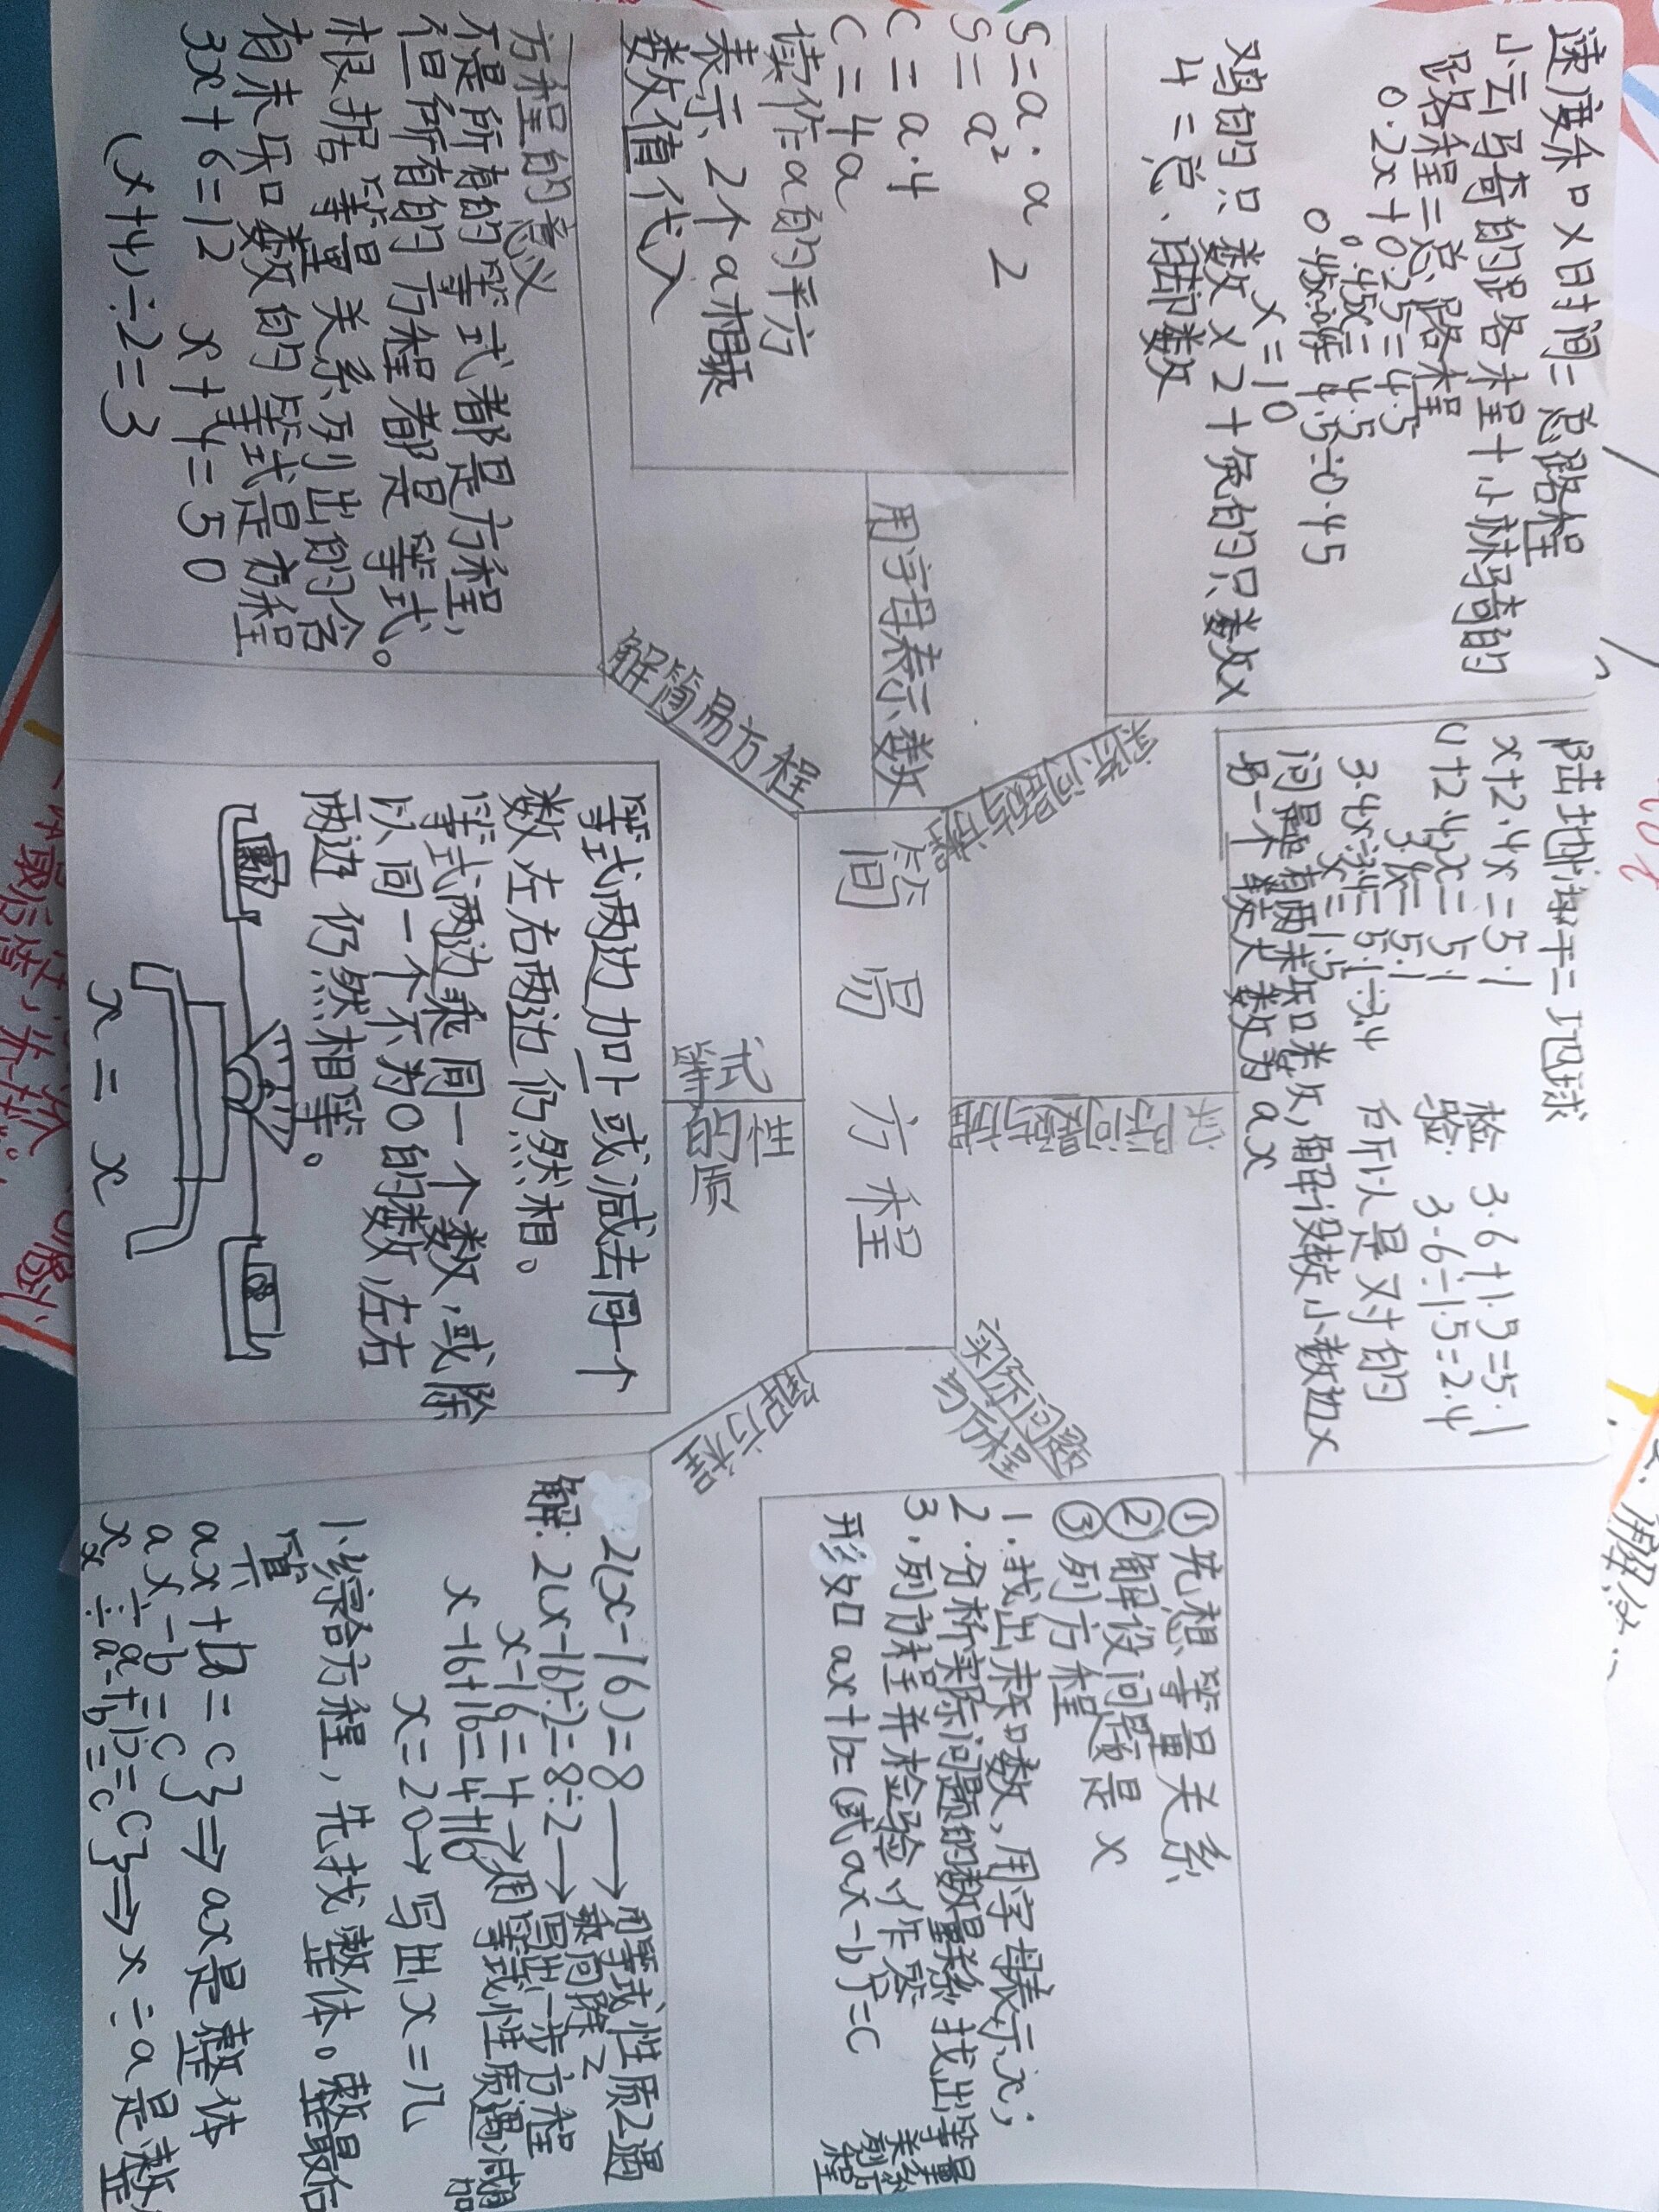 速度和×时间=总路程
小云骑的路程+小林骑的
路程=总路程
0.2x+0.25=4.5
0.45x=4.5
0.45x÷ 4.5÷0.45
x=10
鸡的只数×2+兔的只数×
4=总脚数
S=a·a 2
S=a²
C=a·4
C=4a
读作:a的平方
表示2个a相乘
数值代入
方程的意义
不是所有的等式都是方程,
但所有的方程都是等式。
根据等量关系列出的含
有未知数的等式是方程
3x+6=12 x+4=50
(x+4)÷2=3
用字母表示数
解简易方程
实际问题与方程
陆地+海洋=地球
x+2.4x=5.1
3.4x=5.1
x=1.5
检验 3.6+1.5=5.1
3.6÷1.5=2.4
所以是对的
问题有两未知数,解设较小数为x
另一个较大数为ax
简易方程
等式的性质
等式两边加上或减去同一个
数左右两边仍然相。
等式两边乘同一个数,或除
以同一个不为0的数,左右
两边仍然相等。
x = x
实际问题
与方程
解方程
①先想等量关系
②解设问题是x
③列方程
1.找出未知数,用字母表示x;
2.分析实际问题的数量关系找出等量
关系列方程
3.列方程并检验作答
形如ax+b=(或ax-b)=c
2(x-16)=8→用等式性质2遇
乘同除2
解:2(x-16)÷2=8÷2→写出一步方程
x-16=4→用等式性质遇减
x-16+16=4+16
x=20→写出x=几
1.综合方程,先找整体。整最后
算
ax+b=c}⇒ax是整体
ax-b=c
x÷a+b=c}⇒x÷a是整
x÷a-b=c